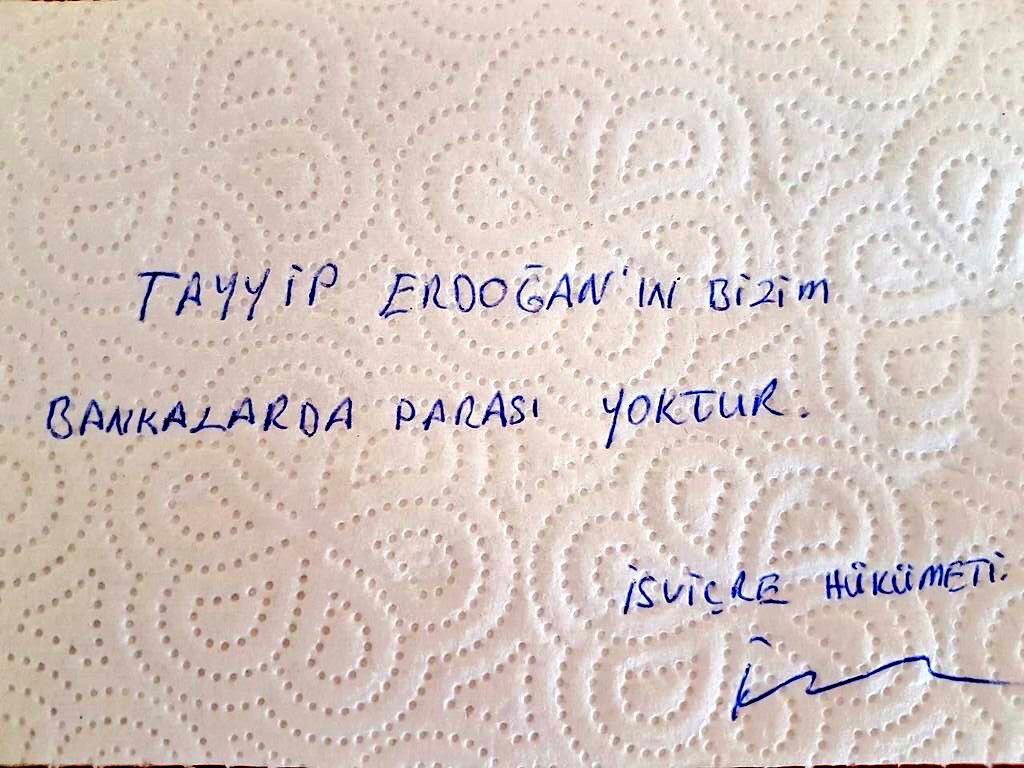 TAYYİP ERDOĞAN'IN BİZİM
BANKALARDA PARASI YOKTUR.
İSVİÇRE HÜKÜMETİ.